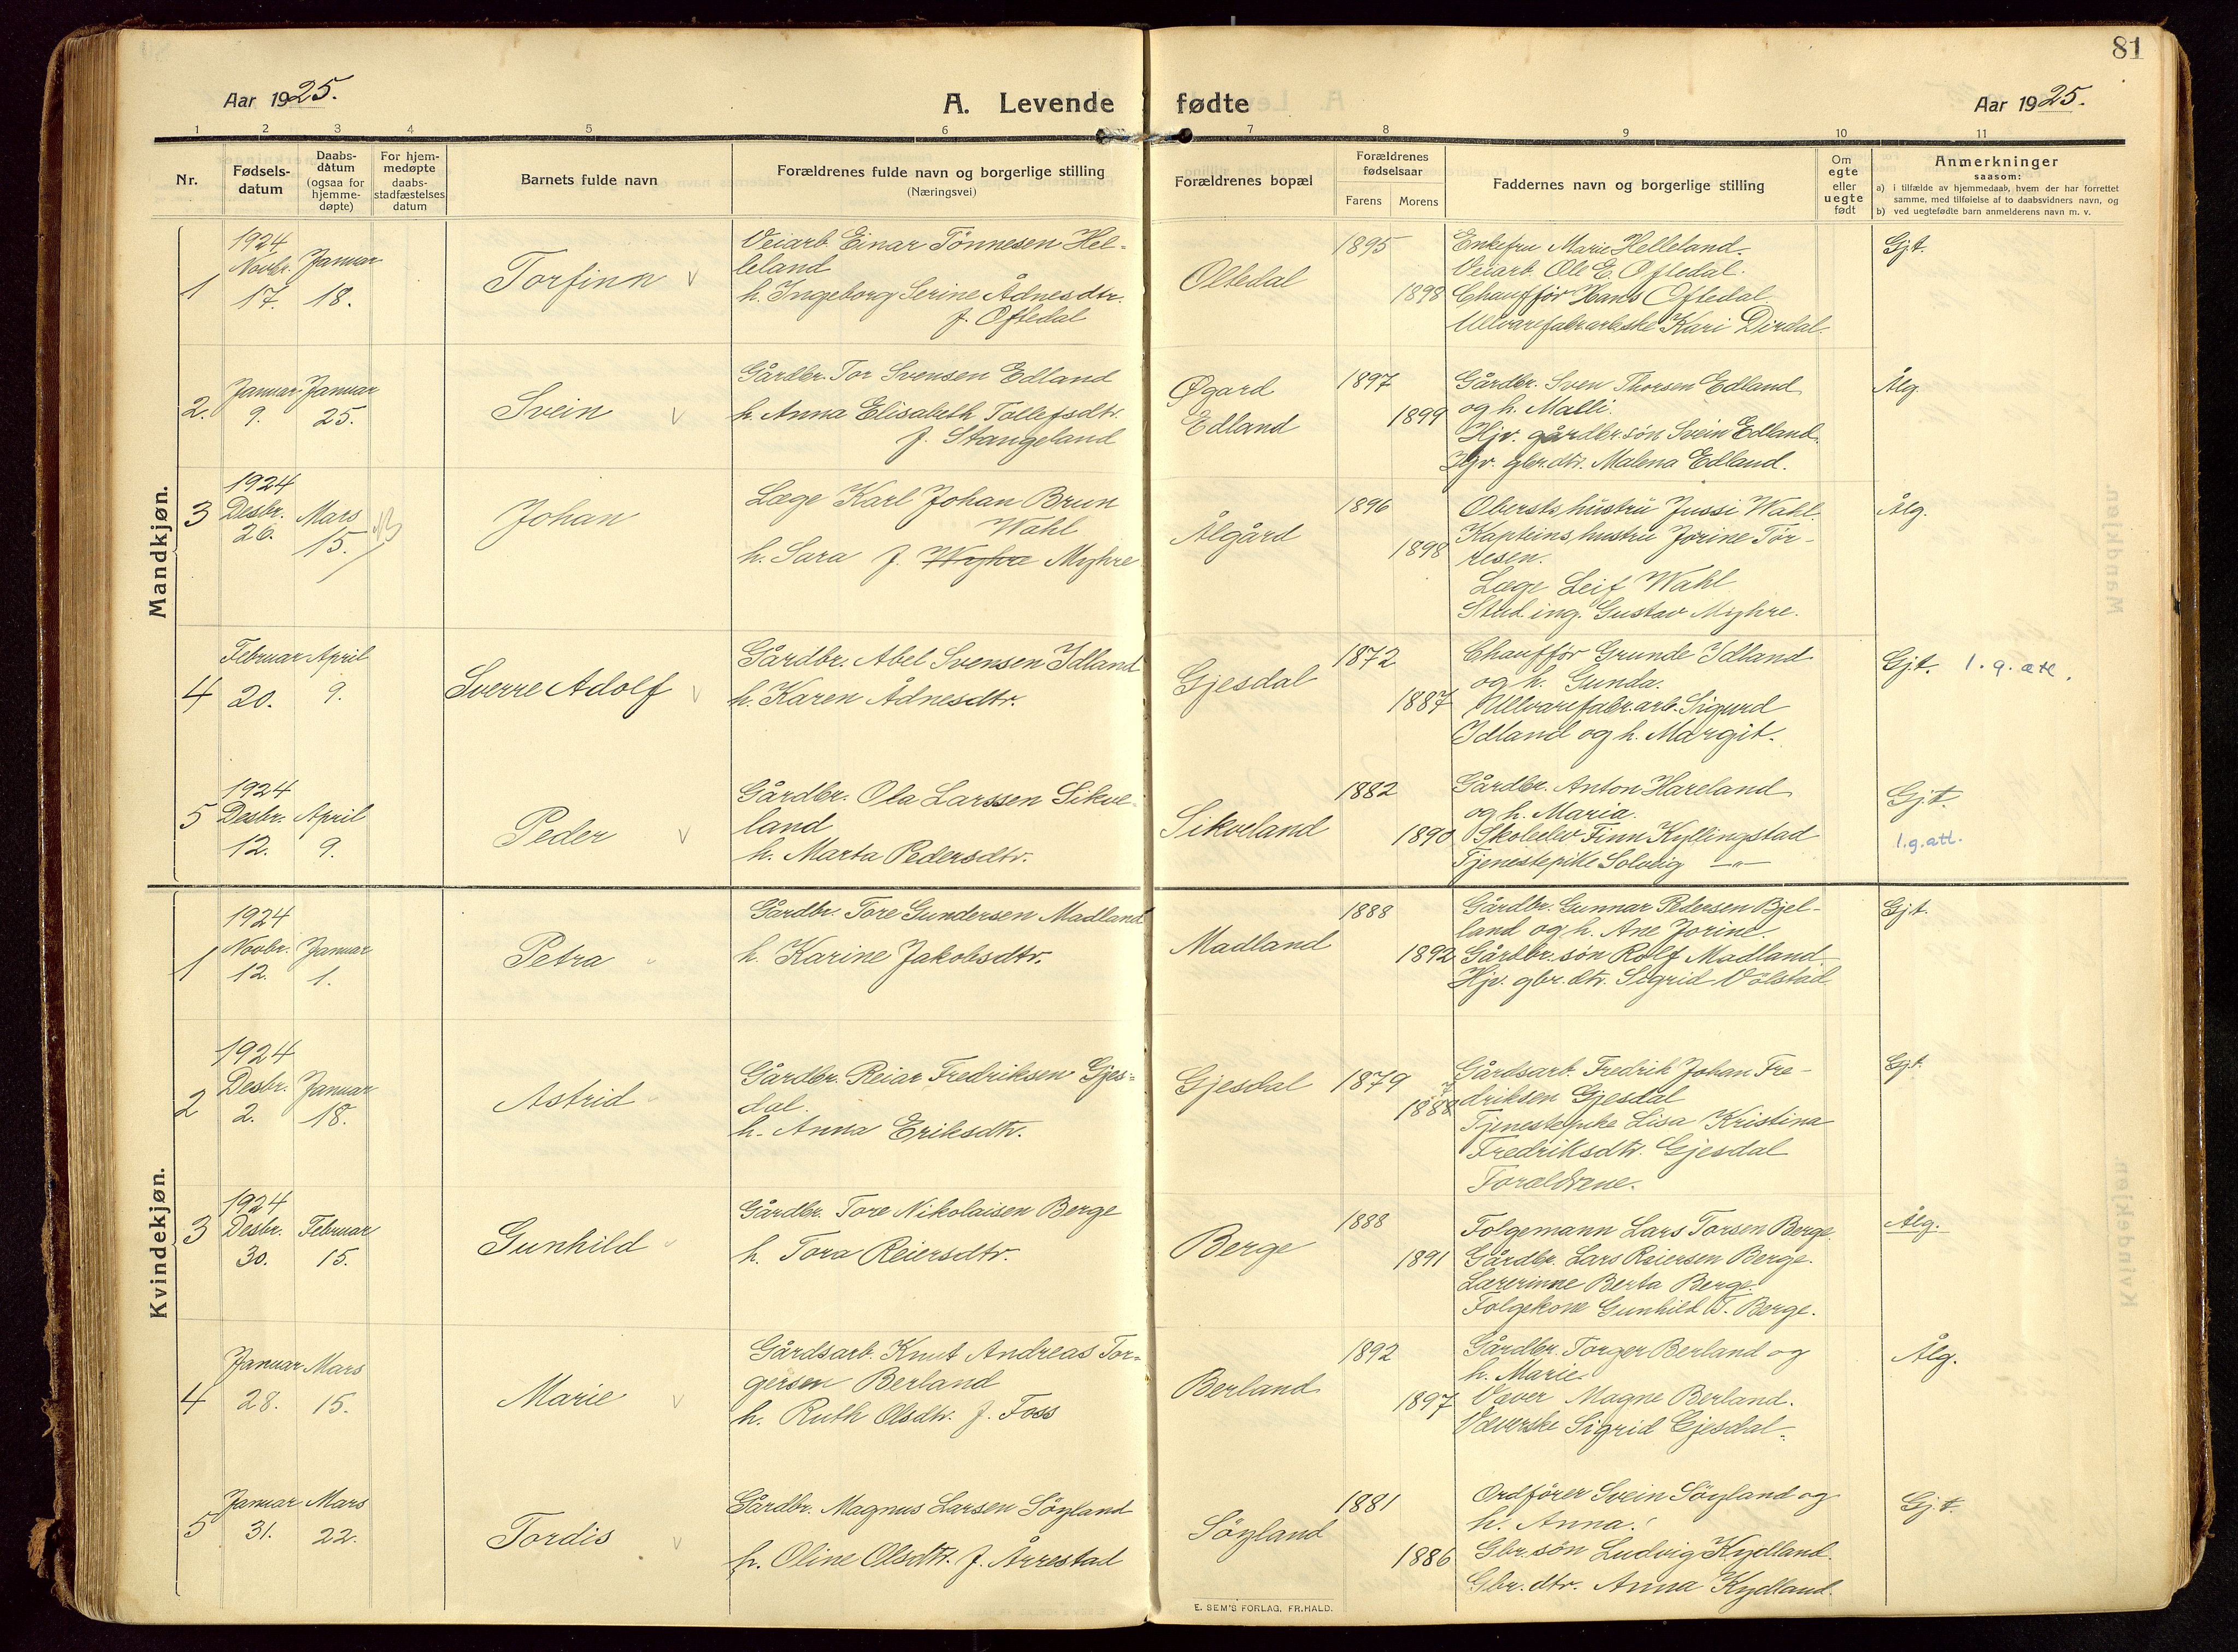 81
Aar 1925.
A. Levende fødte
Aar 1925.
1 2 3 4 5 6 7 8 9 10 11
Nr.
Fødsels-
datum
Daabs-
datum
(ogsaa for
hjemme-
døpte)
For hjem-
medøpte
daabs-
stadfæstelses
datum
Barnets fulde navn
Forældrenes fulde navn og borgerlige stilling
(Næringsvei)
Forældrenes bopæl
Forældrenes
fødselsaar
Farens Morens
Faddernes navn og borgerlige stilling
Om
egte
eller
uegte
født
Anmerkninger
saasom:
a) i tilfælde av hjemmedaab, hvem der har forrettet
samme, med tilføielse av to daabsvidners navn, og
b) ved uegtefødte barn anmelderens navn m. v.
Mandkjøn.
1
1924
Novbr.
17.
Januar
18.
Torfinn
Veiarb. Einar Tönnesen Hel-
leland
h. Ingeborg Serine Ådnesdtr.
f. Oftedal
Oltedal
1895
1898
Enkefru Marie Helleland.
Veiarb. Ole E. Oftedal.
Chaufför Hans Oftedal.
Ullvarefabrarbeske Kari Dirdal.
Gjt.
2.
Januar
9.
Januar
25.
Svein
Gårdbr. Tor Svensen Edland
h. Anna Elisabeth Tollefsdtr.
f. Stangeland
Øgard
Edland
1897
1899
Gårdbr. Sven Thorsen Edland
og h. Malli.
Hjv. gårdbr.sön Svein Edland.
Hjv. gbr.dtr. Malena Edland.
Ålg.
3
1924
Desbr.
26.
Mars
15.
Johan
Læge Karl Johan Brun
Wahl
h. Sara f. Myhre
Ålgård
1896
1898
Obersts hustru Jussi Wahl.
Kapteins hustru Jorine Tör-
resen.
Læge Leif Wahl
Stud ing. Gustav Myhre.
Ålg.
4
Februar
20.
April
9.
Sverre Adolf
Gårdbr. Abel Svensen Idland
h. Karen Ådnesdtr.
Gjesdal
1872
1887
Chaufför Grunde Idland
og h. Gunda.
Ullvarefabr.arb. Sigurd
Idland og h. Margit.
Gjt. 1. g. att.
5
1924
Desbr.
12.
April
9.
Peder
Gårdbr. Ola Larssen Sikve-
land
h. Marta Pedersdtr.
Sikveland
1882
1890
Gårdbr. Anton Hareland
og h. Maria.
Skoleelev Finn Kyllingstad
Tjenestepike Solveig —"—
Gjt.
1.g.att.
Kvindekjøn.
1
1924
Novbr.
12.
Januar
1.
Petra
Gårdbr. Tore Gundersen Madland
h. Karine Jakobsdtr.
Madland
1888
1892
Gårdbr. Gunnar Pedersen Bjel-
land og h. Ane Jorine.
Gårdbr. sön Rolf Madland
Hjv. gbr. dtr. Sigrid Völstad
Gjt.
2
1924
Desbr.
2.
Januar
18.
Astrid
Gårdbr. Reiar Fredriksen Gjes-
dal.
h. Anna Eriksdtr.
Gjesdal
1879
1888
Gårdsarb. Fredrik Johan Fre-
driksen Gjesdal
Tjenestepike Lisa Kristina
Fredriksdtr. Gjesdal
Forældrene.
Gjt.
3
1924
Desbr.
30.
Februar
15.
Gunhild
Gårdbr. Tore Nikolaisen Berge
h. Tora Reiersdtr.
Berge
1888
1891
Folgemann Lars Torsen Berge.
Gårdbr. Lars Reiersen Berge.
Lærerinne Berta Berge.
Folgekone Gunhild T. Berge.
Ålg.
4
Januar
28.
Mars
15.
Marie
Gårdsarb. Knut Andreas Tor-
gersen Berland
h. Ruth Olsdtr. f. Foss
Berland
1892
1897
Gårdbr. Torger Berland og
h. Marie.
Væver Magne Berland.
Væverske Sigrid Gjesdal.
Ålg.
5
Januar
31.
Mars
22.
Tordis
Gårdbr. Magnus Larsen Söyland
h. Oline Olsdtr. f. Årrestad
Söyland
1881
1886
Ordförer Svein Söyland og
h. Anna.
Gbr. sön Ludvig Kydland.
Gbr. dtr. Anna Kydland.
Gj.t.
E. SEM'S FORLAG, FR.HALD.